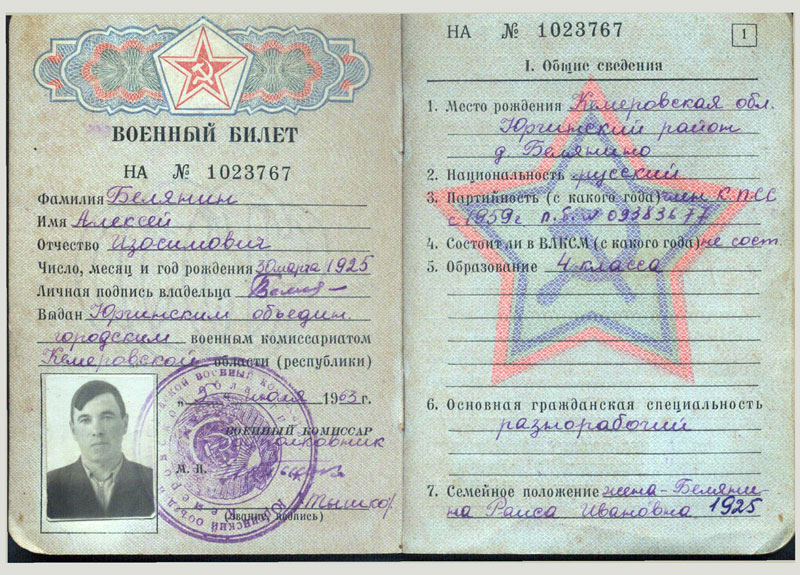 ВОЕННЫЙ БИЛЕТ
НА № 1023767
Фамилия Белянин
Имя Алексей
Отчество Изосимович
Число, месяц и год рождения 30 марта 1925
Личная подпись владельца
Выдан Юргинским объедин.
городским военным комиссариатом
Кемеровской области (республики)
„2“ июля 1963 г.
ВОЕННЫЙ КОМИССАР
полковник
М. П.
(звание, подпись)
НА № 1023767
1
I. Общие сведения
1. Место рождения Кемеровская обл.
Юргинский район
д. Белянино
2. Национальность русский
3. Партийность (с какого года) член КПСС
с 1959г п.б. № 09383677
4. Состоит ли в ВЛКСМ (с какого года) не сост.
5. Образование 4 класса
6. Основная гражданская специальность
разнорабочий
7. Семейное положение жена-Беляни-
на Раиса Ивановна 1925